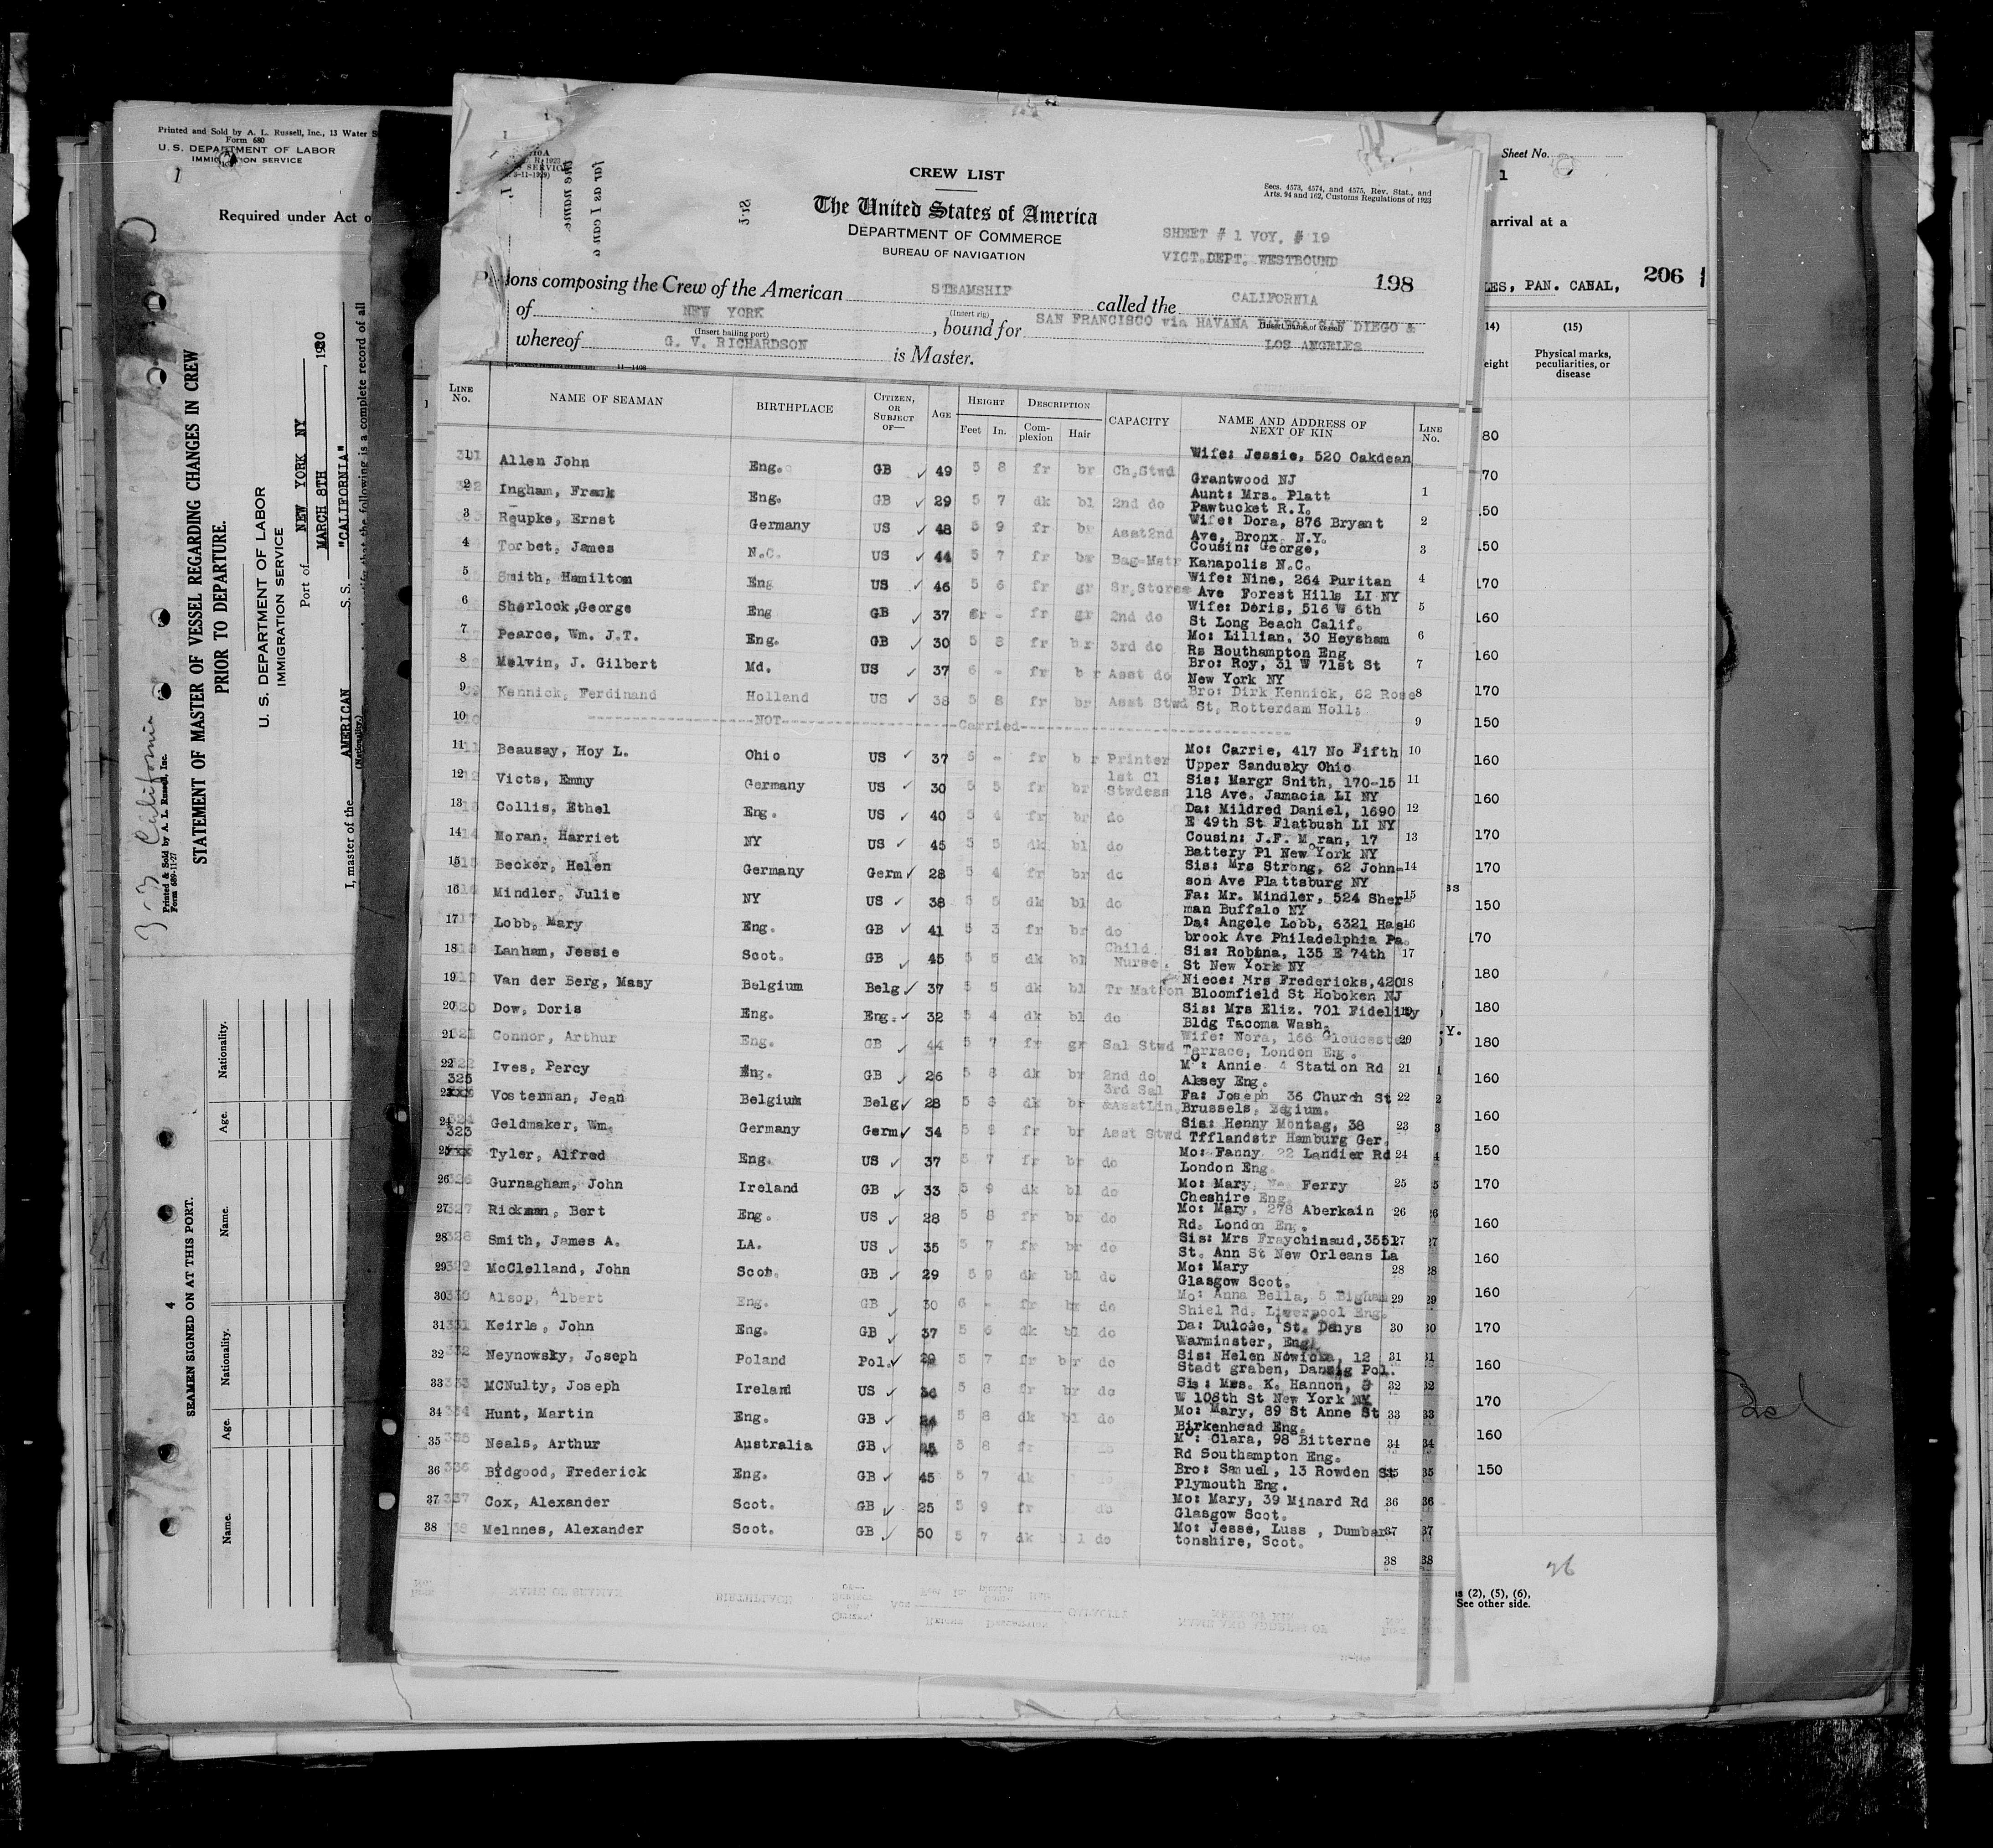 Printed and Sold by A. L. Russell, Inc., 13 Water
Form 680
U. S. DEPARTMENT OF LABOR
IMMIGRATION SERVICE
Required under Act
3-23 California
Printed & Sold by A. L. Russell, Inc.
Form 689-11-27
STATEMENT OF MASTER OF VESSEL REGARDING CHANGES IN CREW
PRIOR TO DEPARTURE.
U. S. DEPARTMENT OF LABOR
IMMIGRATION SERVICE
Port of NEW YORK NY
MARCH 8TH, 1930
I, master of the AMERICAN S. S. "CALIFORNIA"
(Nationality.)
that the following is a complete record of all
4
SEAMEN SIGNED ON AT THIS PORT.
Name. Age. Nationality. Name. Age. Nationality.
CREW LIST
Secs. 4573, 4574, and 4575, Rev. Stat., and
Arts. 94 and 162, Customs Regulations of 1923
The United States of America
DEPARTMENT OF COMMERCE
BUREAU OF NAVIGATION
SHEET # 1 VOY. # 19
VICT.DEPT. WESTBOUND
198
sons composing the Crew of the American STEAMSHIP called the CALIFORNIA
(Insert rig) (Insert name of vessel)
of NEW YORK, bound for SAN FRANCISCO via HAVANA BALBOA SAN DIEGO &
(Insert hailing port)
LOS ANGELES
whereof G. V. RICHARDSON is Master.
11-1408
LINE No. NAME OF SEAMAN BIRTHPLACE CITIZEN, OR SUBJECT OF— AGE HEIGHT Feet In. DESCRIPTION Complexion Hair CAPACITY NAME AND ADDRESS OF NEXT OF KIN LINE No.
Wife: Jessie, 520 Oakdean
1 Allen John Eng. GB 49 5 8 fr br Ch.Stwd Grantwood NJ
2 Ingham, Frank Eng. GB 29 5 7 dk bl 2nd do Aunt: Mrs. Platt
Pawtucket R.I.
3 Roupke, Ernst Germany US 48 5 9 fr br Asst2nd Wife: Dora, 876 Bryant
Ave, Bronx, N.Y.
4 Torbet, James N.C. US 44 5 7 fr br Bag-Mstr Cousin: George,
Kanapolis N.C.
5 Smith, Hamilton Eng US 46 5 6 fr gr Sr.Stores Wife: Nine, 264 Puritan
Ave Forest Hills LI NY
6 Sherlock,George Eng GB 37 6 - fr gr 2nd do Wife: Doris, 516 W 6th
St Long Beach Calif.
7 Pearce, Wm. J.T. Eng. GB 30 5 8 fr br 3rd do Mo: Lillian, 30 Heysham
Rs Southampton Eng
8 Melvin, J. Gilbert Md. US 37 6 - fr br Asst do Bro: Roy, 31 W 71st St
New York NY
9 Kennick, Ferdinand Holland US 38 5 8 fr br Asst Stwd Bro: Dirk Kennick, 62 Rose
St, Rotterdam Holl;
10 NOT Carried
11 Beausay, Hoy L. Ohio US 37 5 - fr br Printer Mo: Carrie, 417 No Fifth
Upper Sandusky Ohio
12 Victs, Emmy Germany US 30 5 5 fr br 1st Cl Stwdess Sis: Margr Snith, 170-15
118 Ave. Jamacia LI NY
13 Collis, Ethel Eng. US 40 5 4 fr br do Da: Mildred Daniel, 1690
E 49th St Flatbush LI NY
14 Moran, Harriet NY US 45 5 5 dk bl do Cousin: J.F. Moran, 17
Battery Pl New York NY
15 Becker, Helen Germany Germ 28 5 4 fr br do Sis: Mrs Strong, 62 John-
son Ave Plattsburg NY
16 Mindler, Julie NY US 38 5 5 dk bl do Fa: Mr. Mindler, 524 Sher-
man Buffalo NY
17 Lobb, Mary Eng. GB 41 5 3 fr br do Da: Angele Lobb, 6321 Has-
brook Ave Philadelphia Pa.
18 Lanham, Jessie Scot. GB 45 5 5 dk bl Child Nurse. Sis: Robina, 135 E 74th
St New York NY
19 Van der Berg, Masy Belgium Belg 37 5 5 dk bl Tr Matron Niece: Mrs Fredericks,420
Bloomfield St Hoboken NJ
20 Dow, Doris Eng. Eng. 32 5 4 dk bl do Sis: Mrs Eliz. 701 Fidelity
Bldg Tacoma Wash.
21 Connor, Arthur Eng. GB 44 5 7 fr gr Sal Stwd Wife: Nora, 166 Gloucester
Terrace, London Eng.
22 Ives, Percy Eng. GB 26 5 8 dk br 2nd do Mo: Annie 4 Station Rd
Alsey Eng.
325 Vosterman, Jean Belgium Belg 28 5 8 dk br 3rd Sal &AsstLin. Fa: Joseph 36 Church St
Brussels, Begium.
24 Geldmaker, Wm. Germany Germ 34 5 8 fr br Asst Stwd Sis: Henny Montag, 38
Tfflandstr Hamburg Ger.
323 Tyler, Alfred Eng. US 37 5 7 fr br do Mo: Fanny 22 Landier Rd
London Eng.
26 Gurnagham, John Ireland GB 33 5 9 dk bl do Mo: Mary, Ferry
Cheshire Eng.
27 Rickman, Bert Eng. US 28 5 8 fr br do Mo: Mary, 278 Aberkain
Rd. London Eng.
28 Smith, James A. LA. US 35 5 7 fr br do Sis: Mrs Fraychinaud,3551
St. Ann St New Orleans La
29 McClelland, John Scot. GB 29 5 9 dk bl do Mo: Mary
Glasgow Scot.
30 Alsop, Albert Eng. GB 30 6 - fr br do Mo: Anna Bella, 5 Bigham
Shiel Rd, Liverpool Eng.
31 Keirle, John Eng. GB 37 5 6 dk bl do Da: Dulcie, St. Denys
Warminster, Eng.
32 Neynowsky, Joseph Poland Pol. 29 5 7 fr br do Sis: Helen Nowicka, 12
Stadt graben, Danzig Pol.
33 MCNulty, Joseph Ireland US 36 5 8 fr br do Sis: Mrs. K. Hannon, 8
W 108th St New York NY
34 Hunt, Martin Eng. GB 24 5 8 dk bl do Mo: Mary, 89 St Anne St
Birkenhead Eng.
35 Neals, Arthur Australia GB 5 8 fr Mo: Clara, 98 Bitterne
Rd Southampton Eng.
36 Bidgood, Frederick Eng. GB 45 5 7 dk Bro: Samuel, 13 Rowden St
Plymouth Eng.
37 Cox, Alexander Scot. GB 25 5 9 fr do Mo: Mary, 39 Minard Rd
Glasgow Scot.
38 Melnnes, Alexander Scot. GB 50 5 7 dk bl do Mo: Jesse, Luss , Dumbar-
tonshire, Scot.
Sheet No.
1
arrival at a
LES, PAN. CANAL, 206
(14) (15)
eight Physical marks, peculiarities, or disease
80
170
150
150
170
160
160
170
150
160
160
170
170
150
170
180
180
180
160
160
150
170
160
160
160
170
160
170
160
150
26
(2), (5), (6),
See other side.